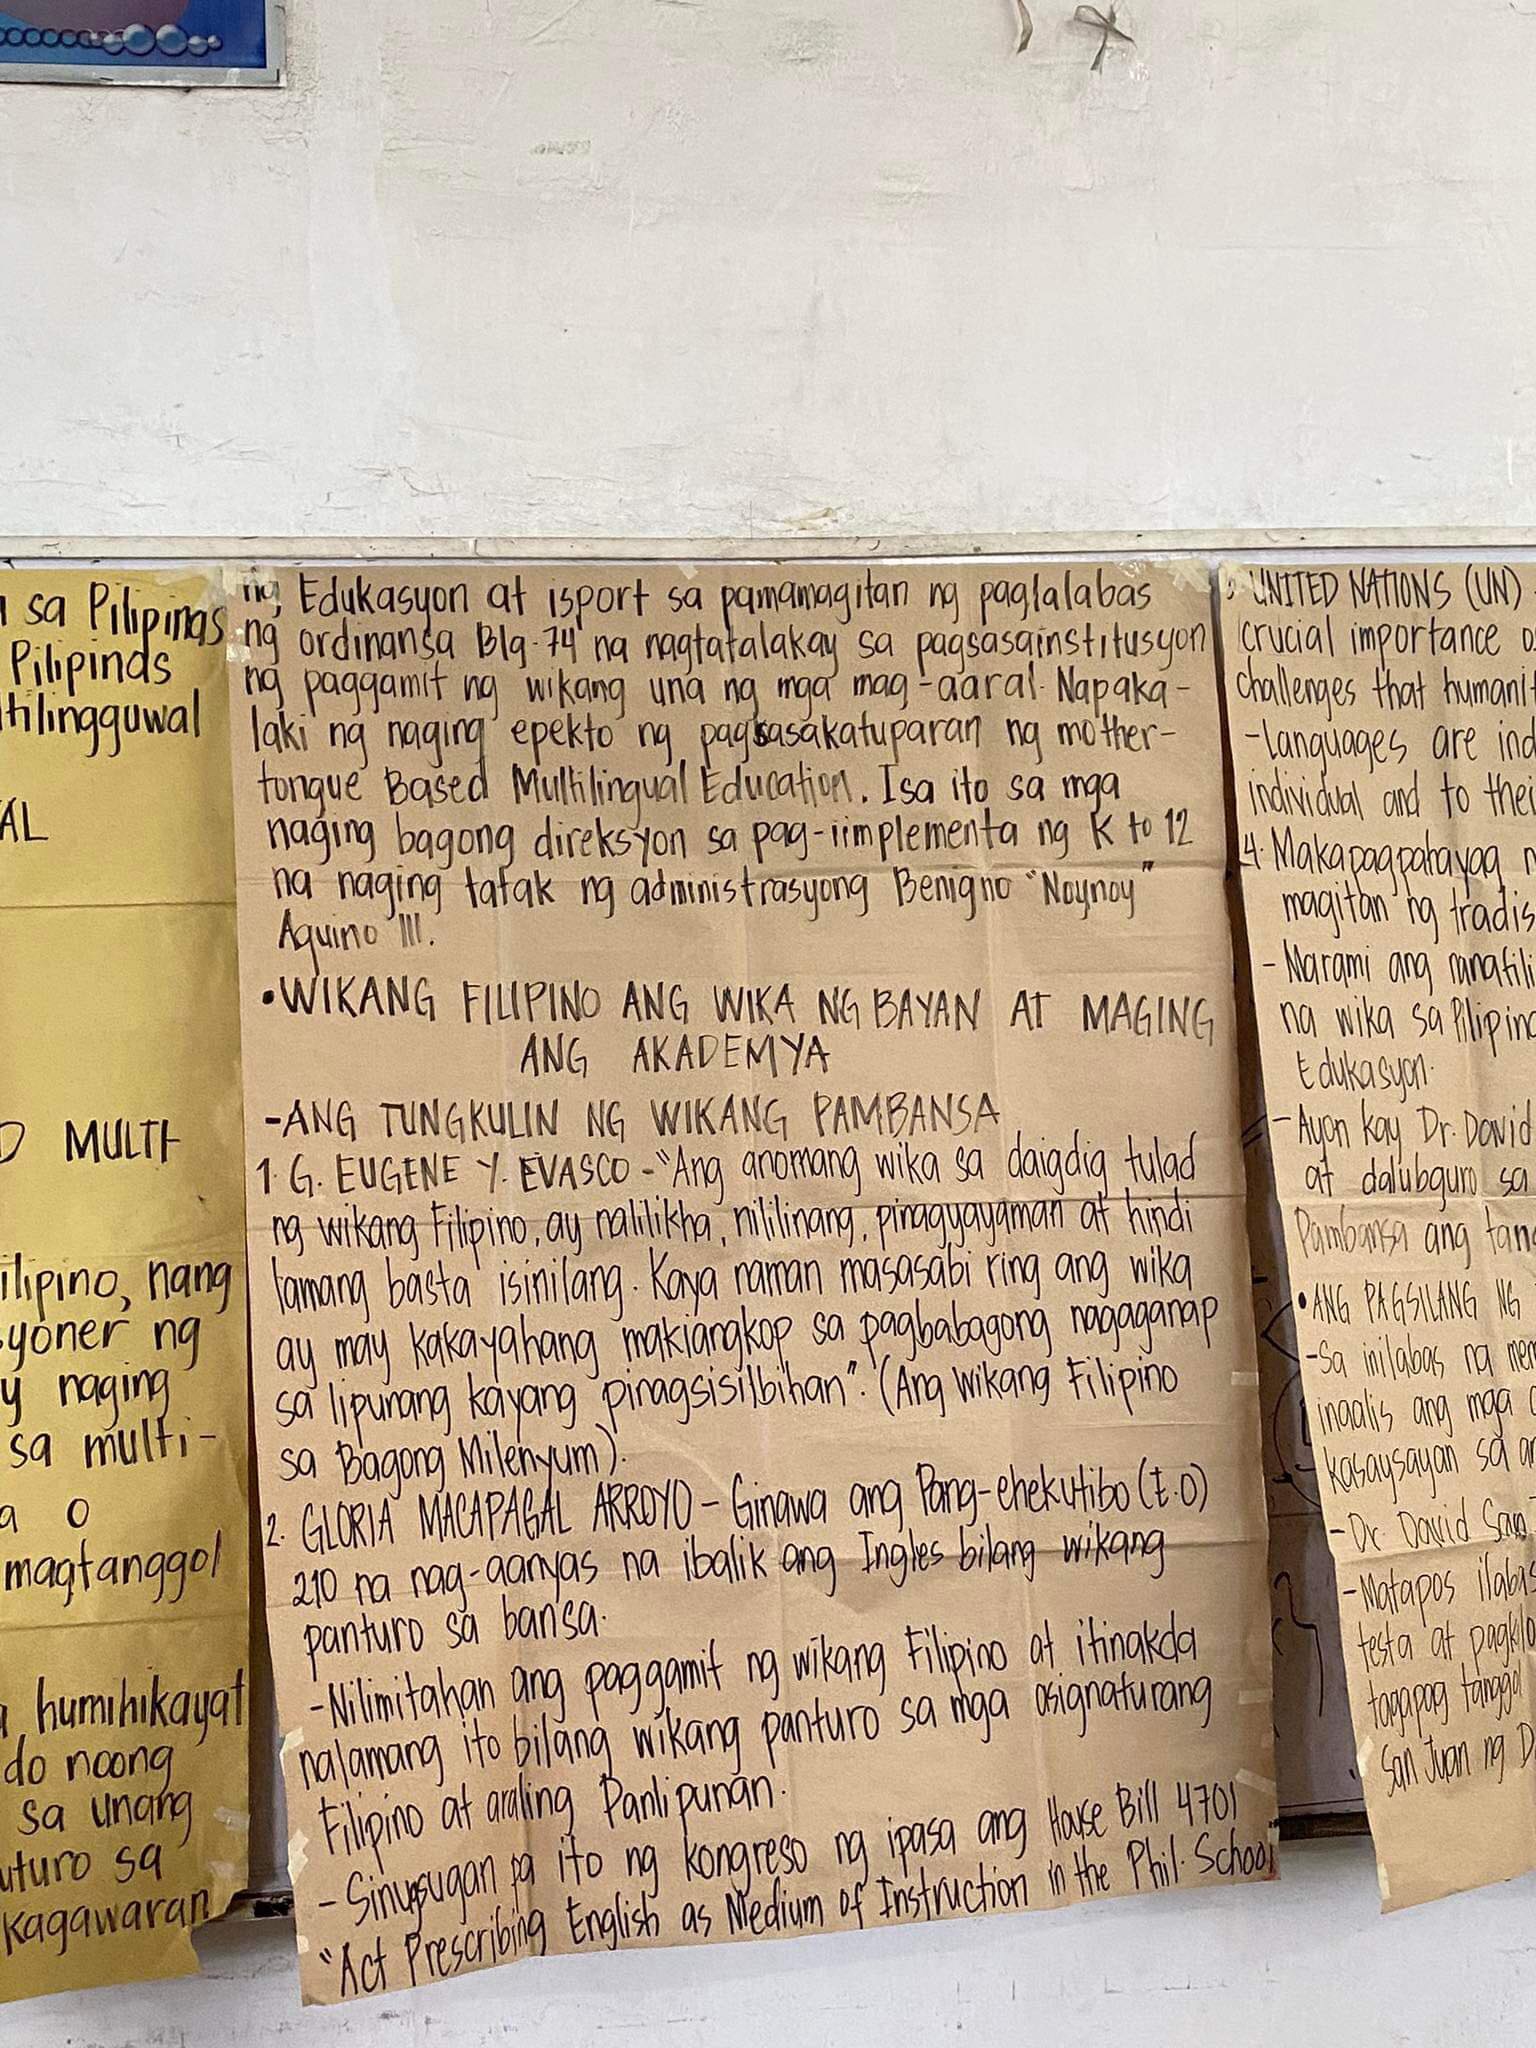 sa Pilipinas
Pilipinas
ltilingguwal
AL
MULTI-
ilipino, nang
syoner ng
y naging
sa multi-
a o
magtanggol
humihikayat
do noong
sa unang
uturo sa
kagawaran
ng Edukasyon at isport sa pamamagitan ng paglalabas
ng ordinansa Blg. 74 na nagtatalakay sa pagsasainstitusyon
ng paggamit ng wikang una ng mga mag-aaral. Napaka-
laki ng naging epekto ng pagsasakatuparan ng mother-
tongue Based Multilingual Education. Isa ito sa mga
naging bagong direksyon sa pag-iimplementa ng K to 12
na naging tatak ng administrasyong Benigno "Noynoy"
Aquino III.
•WIKANG FILIPINO ANG WIKA NG BAYAN AT MAGING
ANG AKADEMYA
-ANG TUNGKULIN NG WIKANG PAMBANSA
1. G. EUGENE Y. EVASCO - "Ang anomang wika sa daigdig tulad
ng wikang Filipino, ay nalilikha, nililinang, pinagyayaman at hindi
lamang basta isinilang. Kaya naman masasabi ring ang wika
ay may kakayahang makiangkop sa pagbabagong nagaganap
sa lipunang kayang pinagsisilbihan". (Ang wikang Filipino
sa Bagong Milenyum).
2. GLORIA MACAPAGAL ARROYO - Ginawa ang Pang-ehekutibo (E.O)
210 na nag-aanyas na ibalik ang Ingles bilang wikang
panturo sa bansa.
-Nilimitahan ang paggamit ng wikang Filipino at itinakda
nalamang ito bilang wikang panturo sa mga asignaturang
Filipino at araling Panlipunan.
- Sinugsugan pa ito ng kongreso ng ipasa ang House Bill 4701
"Act Prescribing English as Medium of Instruction in the Phil. School
3 UNITED NATIONS (UN) -
crucial importance o
challenges that humanit
-Languages are ind
individual and to thei
4. Makapagpahayag n
magitan ng tradis
- Marami ang nanatili
na wika sa Pilipino
Edukasyon.
- Ayon kay Dr. David
at dalubguro sa
Pambansa ang tang
• ANG PAGSILANG NG
-Sa inilabas na mem
inaalis ang mga
kasaysayan sa an
- Dr. David San
-Matapos ilabas
testa at pagkilo
tagapag tanggol
San Juan ng D